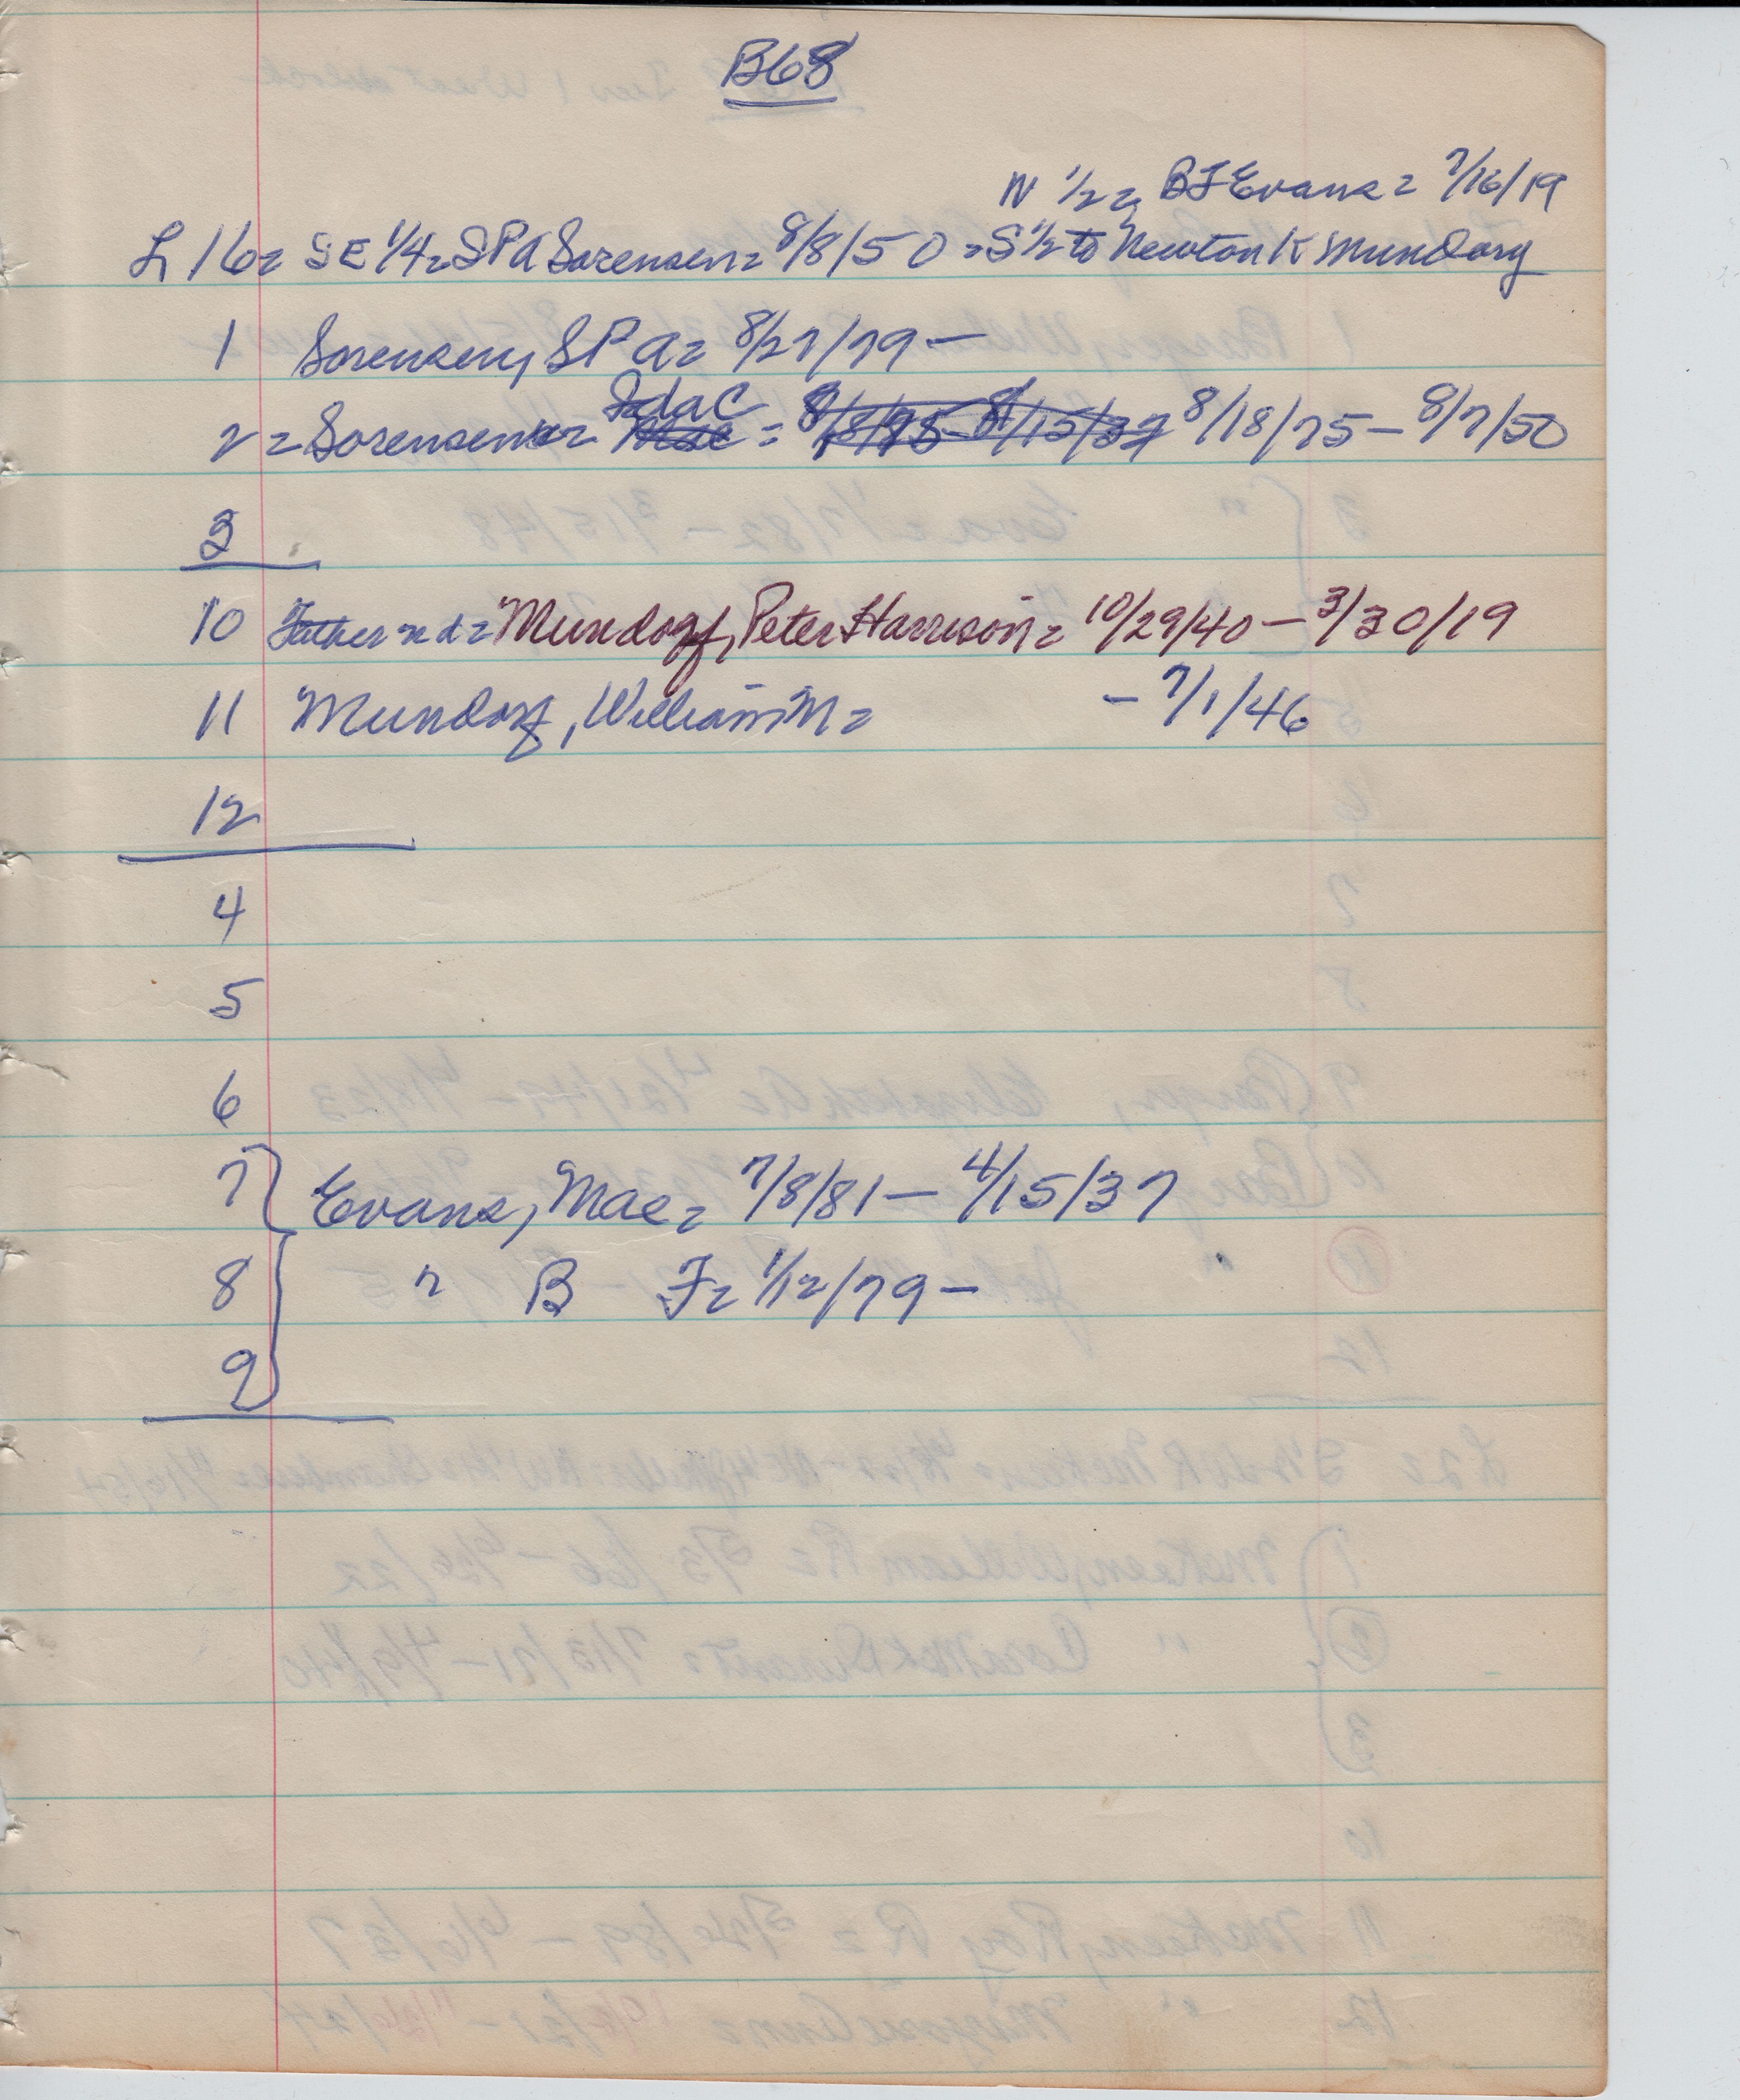 B68
N 1/2 = BF Evans = 7/16/19
L 16 = SE 1/4 = SPA Sorensen = 8/8/50 = S 1/2 to Newton K Mundorf
1 Sorensen, SPA = 8/27/79 -
2 = Sorensen = Ida C = 8/18/75 - 8/7/50
3
10 Father nd = Mundorf, Peter Harrison = 10/29/40 - 3/30/19
11 Mundorf, William M = - 7/1/46
12
4
5
6
7 Evans, Mae = 7/8/81 - 4/15/37
8 " B F = 1/12/79 -
9